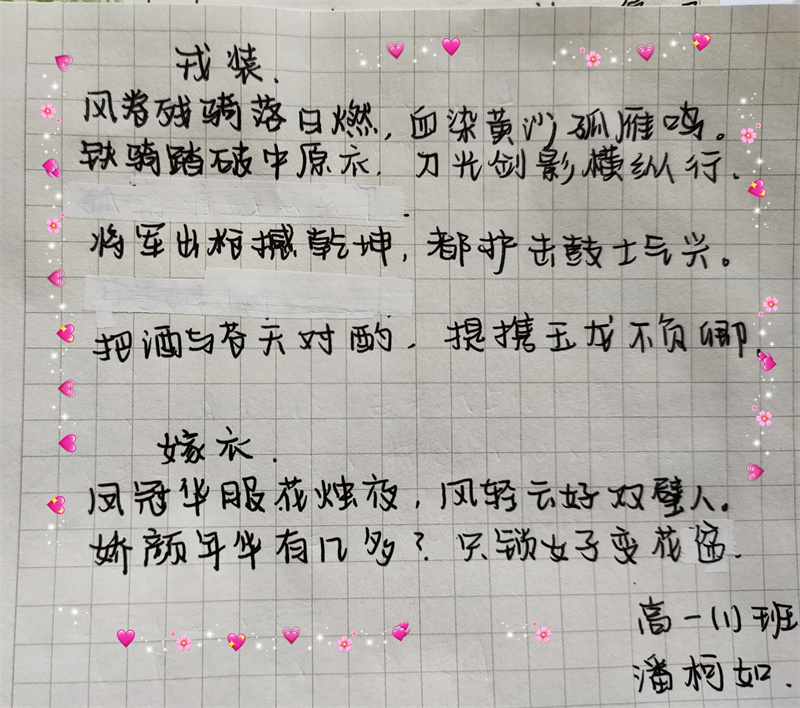 戎装.
风卷残骑落日燃,血染黄沙孤雁鸣。
铁骑踏破中原衣.刀光剑影横纵行.
将军出枪撼乾坤,都护击鼓士气兴。
把酒与苍天对酌.提携玉龙不负卿.
嫁衣.
凤冠华服花烛夜,风轻云好双璧人。
娇颜年华有几多?只锁女子变花
高一(1)班
潘柯如.